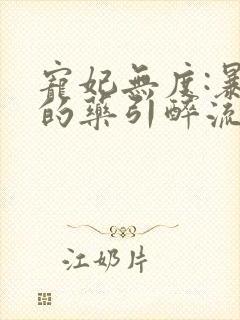 寵妃無度:暴
的藥引醉流
江奶片